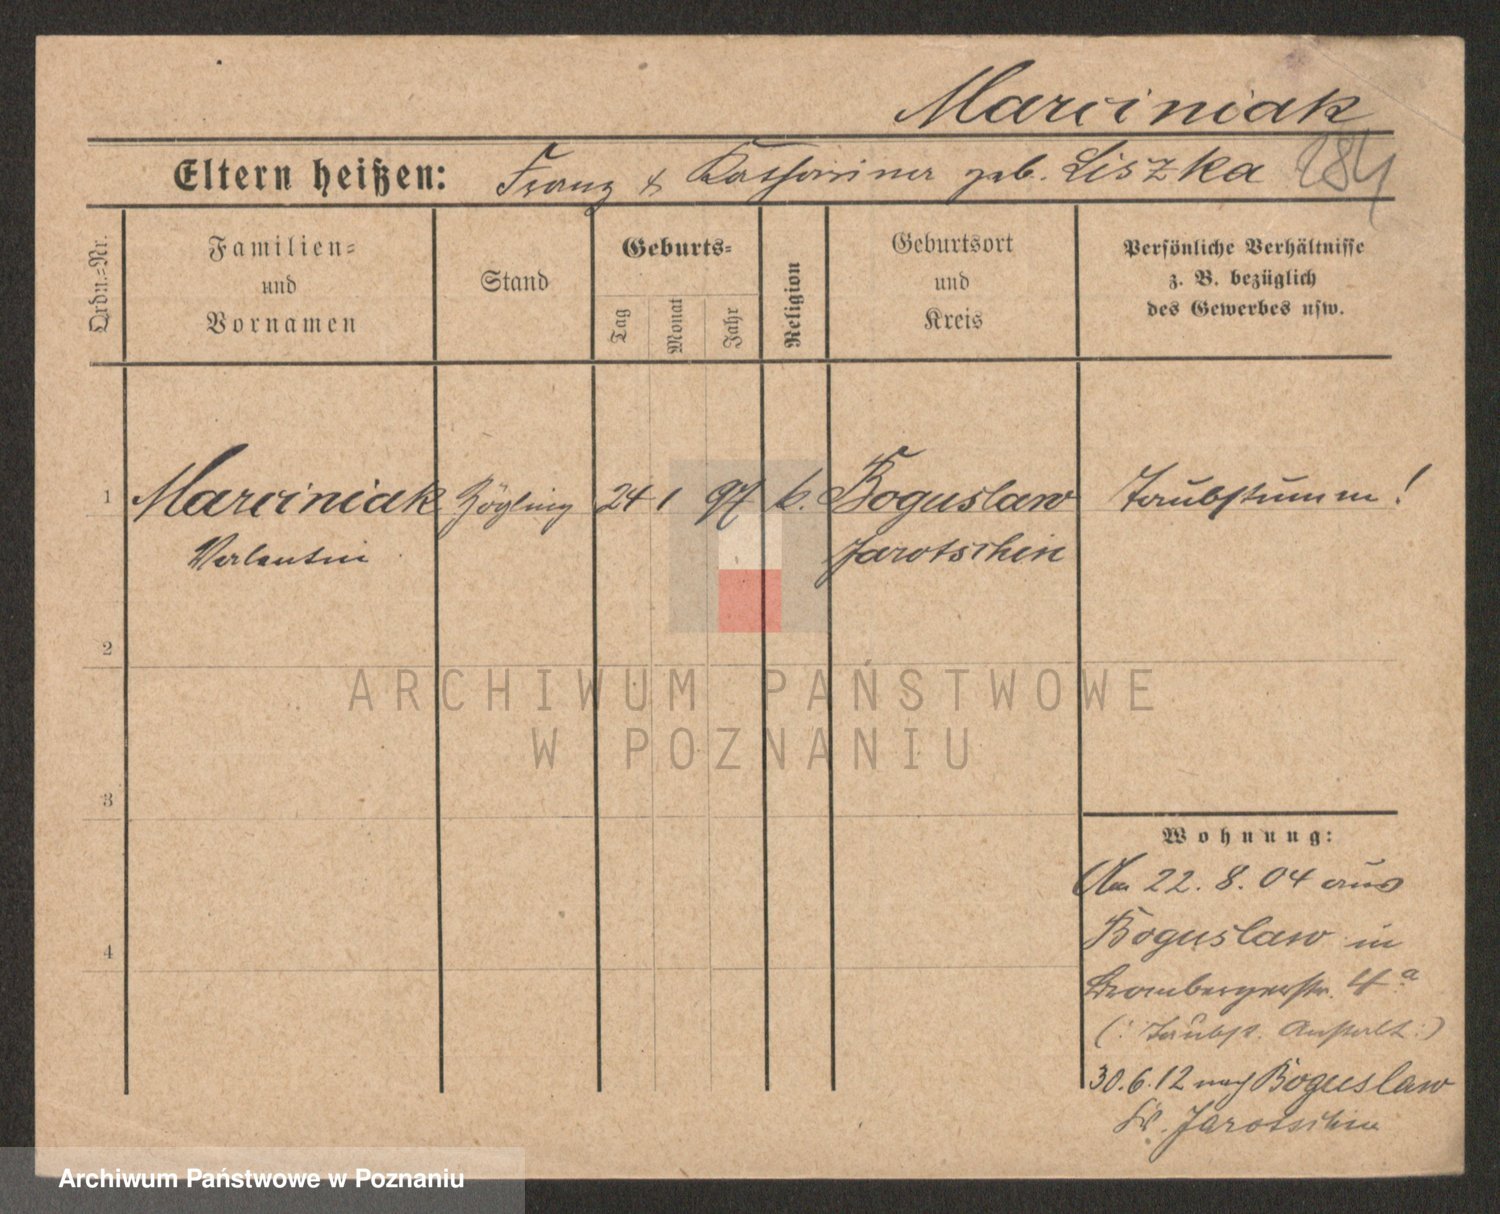 Marciniak
Eltern heißen: Franz & Katharina geb. Liszka 184
Ordn.-Nr.
Familien-
und
Vornamen
Stand
Geburts-
Tag
Monat
Jahr
Religion
Geburtsort
und
Kreis
Persönliche Verhältnisse
z. B. bezüglich
des Gewerbes usw.
1 Marciniak Zögling 24 1 97 k. Boguslaw Taubstumm!
Valentin Jarotschin
2
ARCHIWUM PAŃSTWOWE
W POZNANIU
3
Wohnung:
Am 22. 8. 04 aus
Boguslaw in
4
Brombergerstr. 4a
(: Taubst. Anstalt :)
30.6.12 nach Boguslaw
Kr. Jarotschin
Archiwum Państwowe w Poznaniu